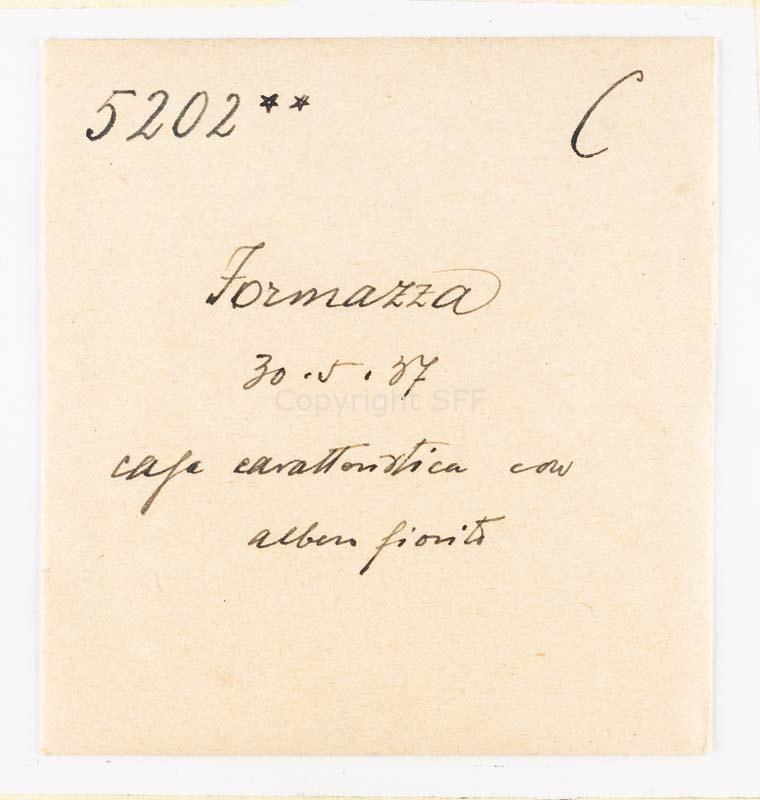 5202** C
Formazza
30.5.37
Copyright SFF
casa caratteristica con
alberi fioriti